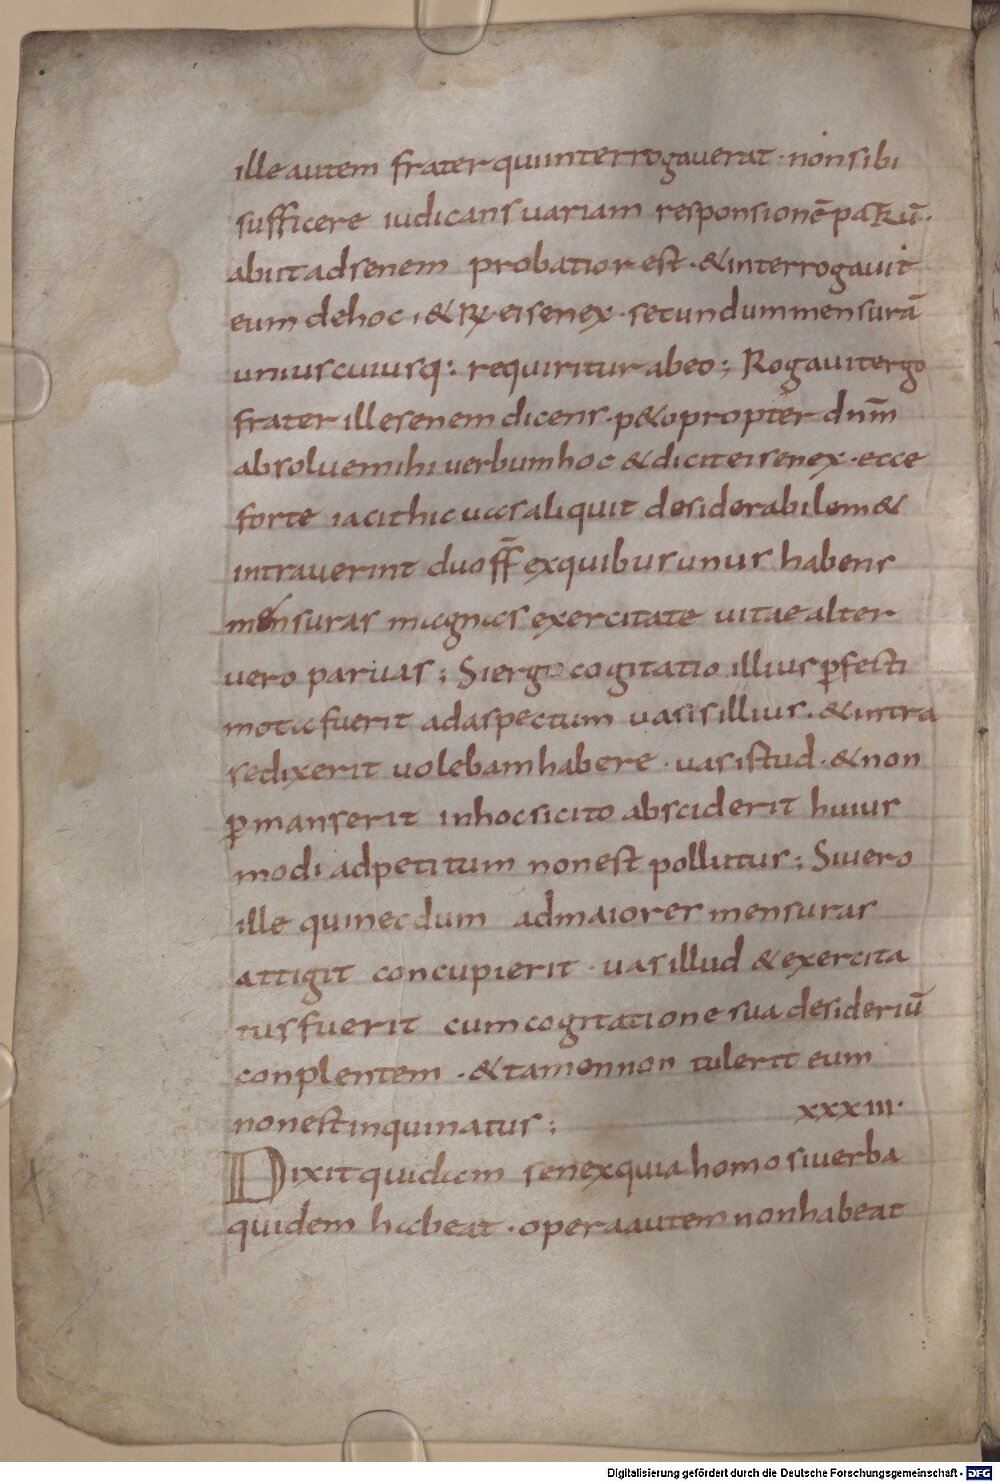 ille autem frater qui interrogauerat · non sibi
sufficere iudicans uariam responsionē patrū ·
abiit ad senem probatior est · & interrogauit
eum de hoc · & Rx ei senex · secundum mensurā
uniuscuiusq: requiritur ab eo ; Rogauit ergo
frater ille senem dicens · p&o propter dn̄m
absolue mihi uerbum hoc & dicit ei senex · ecce
forte iacit hic uas aliquit desiderabilem &
intrauerint duo ff̄ ex quibus unus habens
mensuras magnas exercitate uitae alter
uero paruas ; Si ergo cogitatio illius ꝑfecti
mota fuerit ad aspectum uasis illius · & intra
se dixerit uolebam habere · uas istud · & non
ꝑmanserit in hoc si cito absciderit huius
modi adpetitum non est pollutus ; Si uero
ille qui necdum ad maiores mensuras
attigit concupierit · uas illud & exercita
tus fuerit cum cogitatione sua desideriū
conplentem · & tamen non tulerit eum
non est inquinatus ; xxxiii ·
Dixit quidam senex quia homo si uerba
quidem habeat · opera autem non habeat
Digitalisierung gefördert durch die Deutsche Forschungsgemeinschaft - DFG